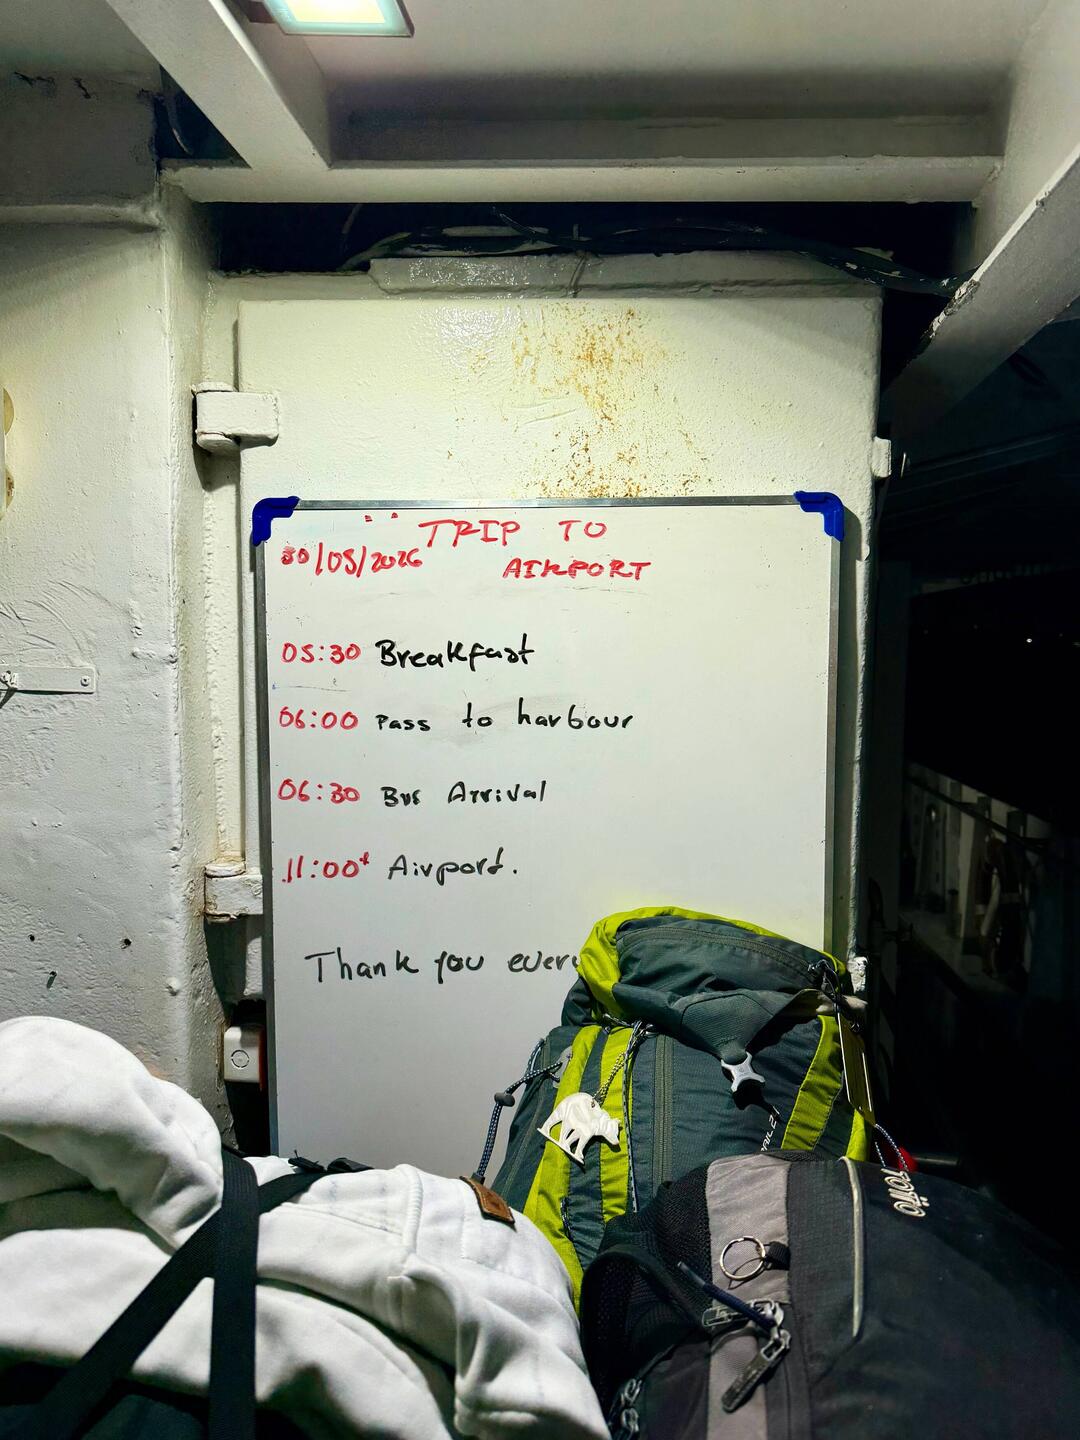 TRIP TO
30/05/2026 AIRPORT
05:30 Breakfast
06:00 Pass to harbour
06:30 Bus Arrival
11:00+ Airport.
Thank you every